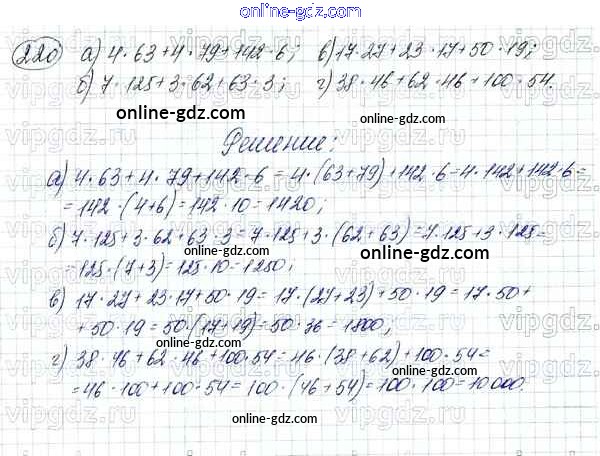 online-gdz.com
220 а) 4·63+4·79+142·6; в) 17·27+23·17+50·19;
б) 7·125+3·62+63·3; г) 38·46+62·46+100·54.
online-gdz.com online-gdz.com
Решение:
а) 4·63+4·79+142·6=4·(63+79)+142·6=4·142+142·6=
=142·(4+6)=142·10=1420;
online-gdz.com
б) 7·125+3·62+63·3=7·125+3·(62+63)=7·125+3·125=
=125·(7+3)=125·10=1250;
online-gdz.com
в) 17·27+23·17+50·19=17·(27+23)+50·19=17·50+
+50·19=50·(17+19)=50·36=1800;
online-gdz.com
г) 38·46+62·46+100·54=46·(38+62)+100·54=
=46·100+100·54=100·(46+54)=100·100=10000.
online-gdz.com
online-gdz.com
vipgdz.ru